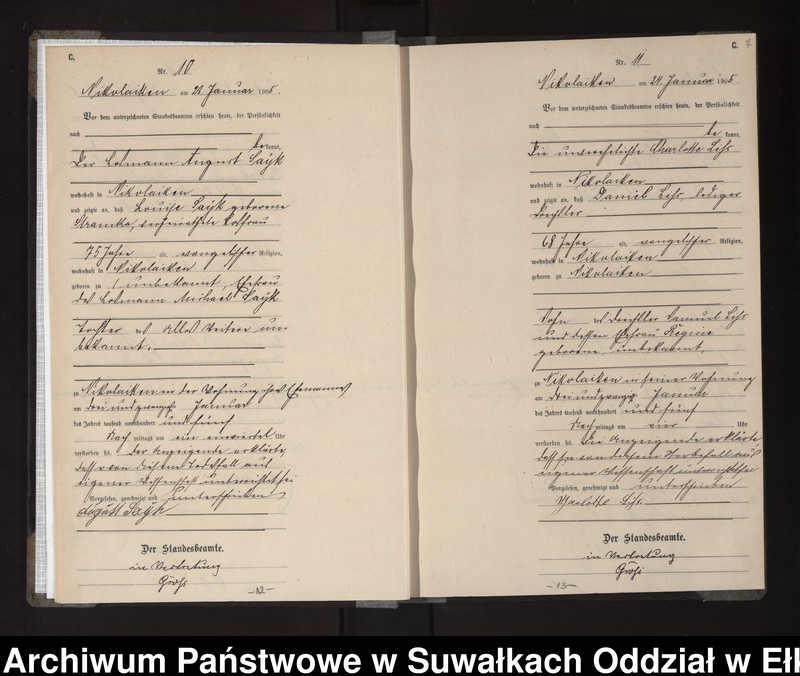 C.
Nr. 10
Nikolaiken am 28. Januar 1905
Vor dem unterzeichneten Standesbeamten erschien heute, der Persönlichkeit
nach
be kannt,
Der Losmann August Saÿk
wohnhaft in Nikolaiken
und zeigte an, daß Louise Saÿk geborene
verheirathete
75 Jahre alt, evangelischer Religion,
wohnhaft in Nikolaiken
geboren zu unbekannt, Ehefrau
des Losmann Michael Saÿk
Tochter des Alles Weitere un-
bekannt.
zu Nikolaiken in der Wohnung ihres Ehemannes
am drei und zwanzigsten Januar
des Jahres tausend neunhundert und fünf
Nach mittags um ein einviertel Uhr
verstorben sei. Der Anzeigende erklärte
dass er von diesem Todesfall aus
eigener Wissenschaft unterrichtet sei
Vorgelesen, genehmigt und unterschrieben
August Saÿk
Der Standesbeamte.
in Vertretung
-12-
C. 7
Nr. 11
Nikolaiken am 24. Januar 1905
Vor dem unterzeichneten Standesbeamten erschien heute, der Persönlichkeit
nach
be kannt,
Die unverehelichte Charlotte
wohnhaft in Nikolaiken
und zeigte an, daß Daniel lediger
68 Jahre alt, evangelischer Religion,
wohnhaft in Nikolaiken
geboren zu Nikolaiken
Sohn des Samuel
und dessen Ehefrau Regine
geborene, unbekannt,
zu Nikolaiken in seiner Wohnung
am drei und zwanzig Januar
des Jahres tausend neunhundert und fünf
Nach mittags um vier Uhr
verstorben sei. Die Anzeigende erklärte
dass sie von diesem Sterbefall aus
eigener Wissenschaft unterrichtet sei
Vorgelesen, genehmigt und unterschrieben
Der Standesbeamte.
in Vertretung
-13-
Archiwum Państwowe w Suwałkach Oddział w Ełk